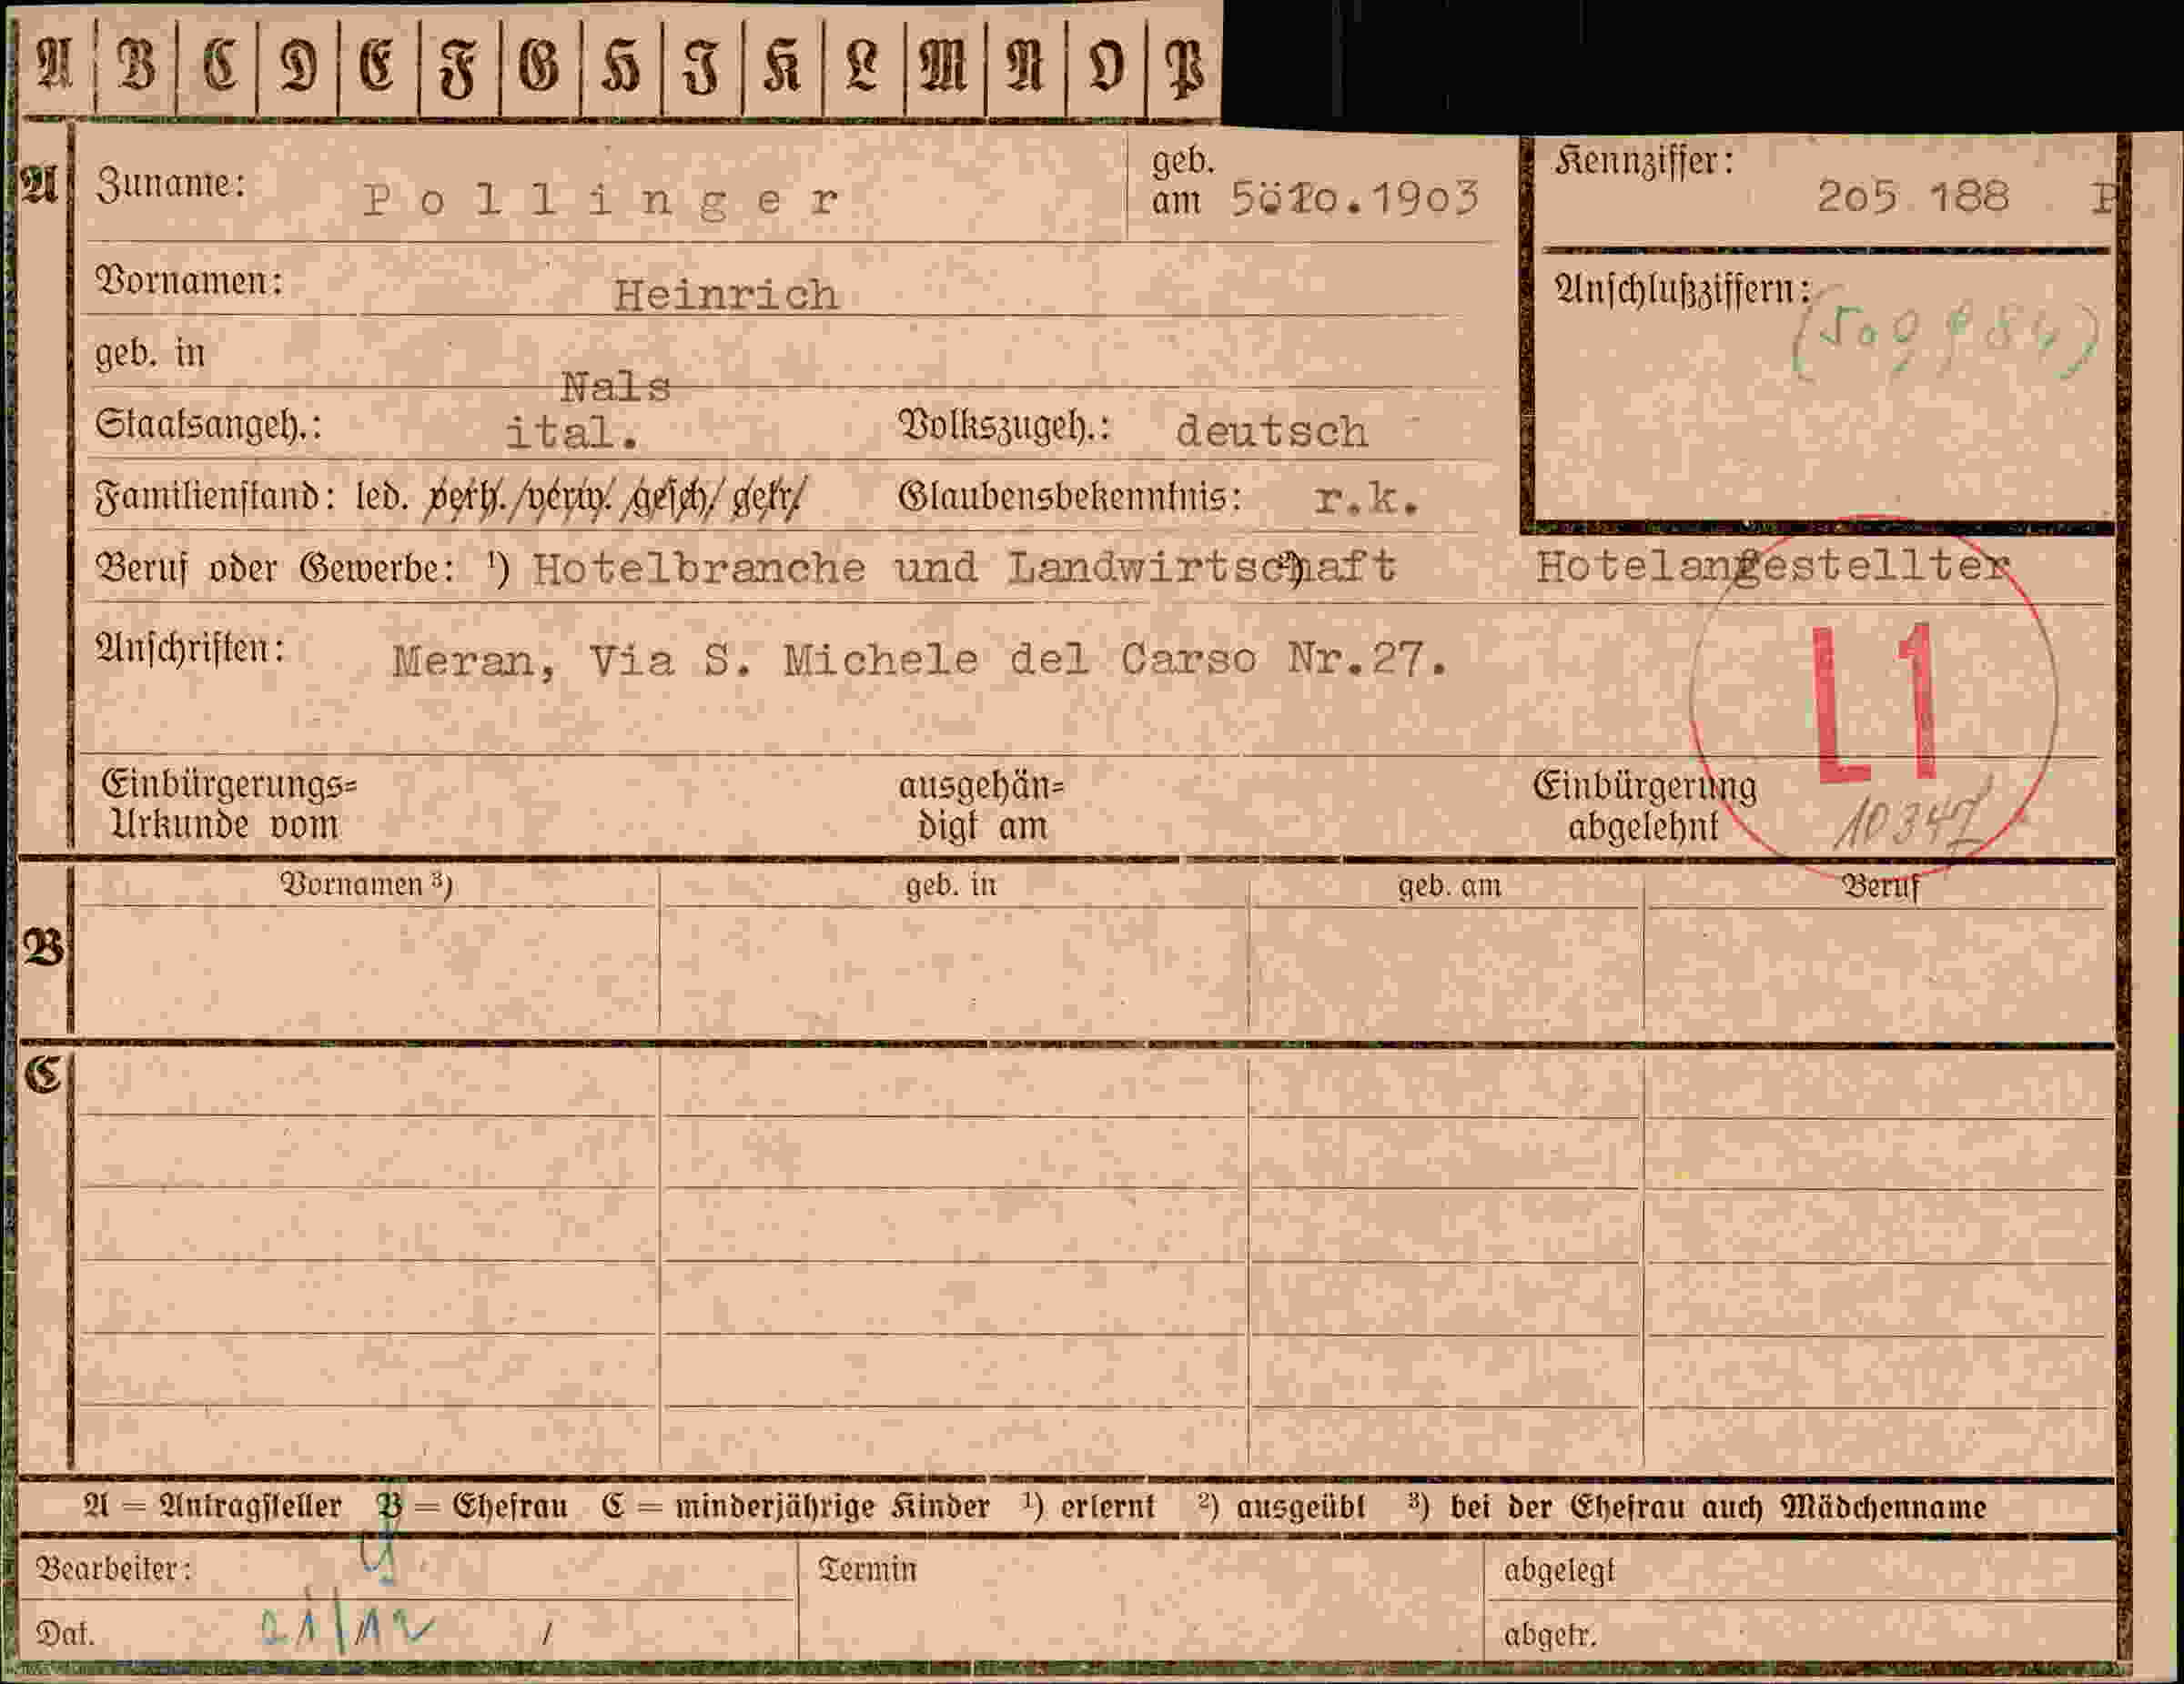 A B C D E F G H I K L M N O P
A Zuname: Pollinger geb. am 5.10.1903 Kennziffer: 205 188 P
Vornamen: Heinrich Anschlußziffern:
geb. in Nals
Staatsangeh.: ital. Volkszugeh.: deutsch
Familienstand: led. verh./verw./gesch/getr/ Glaubensbekenntnis: r.k.
Beruf oder Gewerbe: ¹) Hotelbranche und Landwirtschaft ²) Hotelangestellter
Anschriften: Meran, Via S. Michele del Carso Nr.27.
L1
Einbürgerungs= ausgehän= Einbürgerung
Urkunde vom digt am abgelehnt
Vornamen ³) geb. in geb. am Beruf
B
C
A = Antragsteller B = Ehefrau C = minderjährige Kinder ¹) erlernt ²) ausgeübt ³) bei der Ehefrau auch Mädchenname
Bearbeiter: Termin abgelegt
Dat. 21/12 / abgetr.